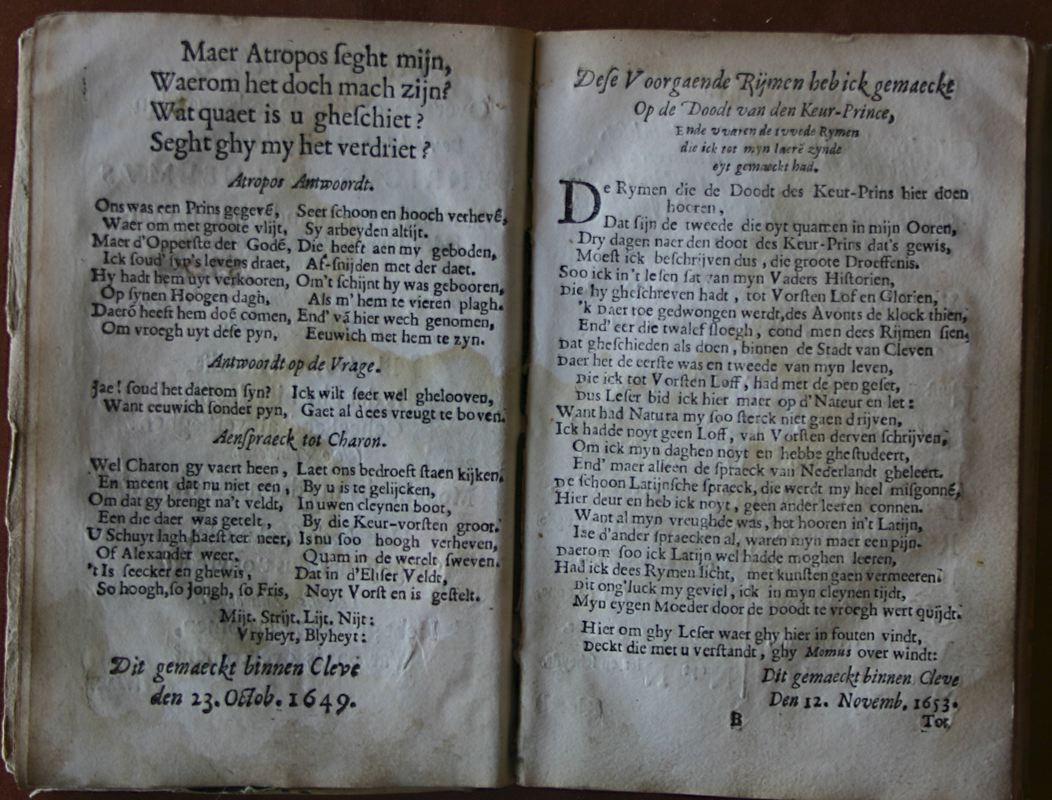 Maer Atropos ſeght mijn,
Waerom het doch mach zijn?
Wat quaet is u gheſchiet?
Seght ghy my het verdriet?
Atropos Antwoordt.
Ons was een Prins gegevē, Seer ſchoon en hooch verhevē,
Waer om met groote vlijt, Sy arbeyden altijt.
Maer d'Opperſte der Godē, Die heeft aen my geboden,
Ick ſoud' ſyn's levens draet, Af-ſnijden met der daet.
Hy hadt hem uyt verkooren, Om't ſchijnt hy was gebooren,
Op ſynen Hoogen dagh, Als m' hem te vieren plagh.
Daerō heeft hem doē comen, End' vā hier wech genomen,
Om vroegh uyt deſe pyn, Eeuwich met hem te zyn.
Antwoordt op de Vrage.
Jae! ſoud het daerom ſyn? Ick wilt ſeer wel ghelooven,
Want eeuwich ſonder pyn, Gaet al dees vreugt te boven.
Aenſpraeck tot Charon.
Wel Charon gy vaert heen, Laet ons bedroeft ſtaen kijken,
En meent dat nu niet een, By u is te gelijcken,
Om dat gy brengt na't veldt, In uwen cleynen boot,
Een die daer was getelt, By die Keur-vorſten groot.
U Schuyt lagh haeſt ter neer, Is nu ſoo hoogh verheven,
Of Alexander weer, Quam in de werelt ſweven.
't Is ſeecker en ghewis, Dat in d'Eliſer Veldt,
So hoogh, ſo Jongh, ſo Fris, Noyt Vorſt en is geſtelt.
Mijt. Strijt. Lijt. Nijt:
Vryheyt, Blyheyt:
Dit gemaeckt binnen Cleve
den 23. Octob. 1649.
Deſe Voorgaende Rijmen heb ick gemaeckt
Op de Doodt van den Keur-Prince,
Ende vvaren de tvvede Rymen
die ick tot myn laerē zynde
oyt gemaeckt had.
De Rymen die de Doodt des Keur-Prins hier doen
hooren,
Dat ſijn de tweede die oyt quamen in mijn Ooren,
Dry dagen naer den doot des Keur-Prins dat's gewis,
Moeſt ick beſchrijven dus, die groote Droeffenis.
Soo ick in't leſen ſat van myn Vaders Hiſtorien,
Die hy gheſchreven hadt, tot Vorſten Lof en Glorien,
'k Daer toe gedwongen werdt, des Avonts de klock thien,
End' eer die twalef ſloegh, cond men dees Rijmen ſien,
Dat gheſchieden als doen, binnen de Stadt van Cleven
Daer het de eerſte was en tweede van myn leven,
Die ick tot Vorſten Loff, had met de pen geſet,
Dus Leſer bid ick hier maer op d'Nateur en let:
Want had Natura my ſoo ſterck niet gaen drijven,
Ick hadde noyt geen Loff, van Vorſten derven ſchrijven,
Om ick myn daghen noyt en hebbe gheſtudeert,
End' maer alleen de ſpraeck van Nederlandt gheleert.
De ſchoon Latijnſche ſpraeck, die werdt my heel miſgonnē,
Hier deur en heb ick noyt, geen ander leeren connen.
Want al myn vreughde was, het hooren in't Latijn,
Iae d'ander ſpraecken al, waren myn maer een pijn.
Daerom ſoo ick Latijn wel hadde moghen leeren,
Had ick dees Rymen licht, met kunſten gaen vermeeren.
Dit ong'luck my geviel, ick in myn cleynen tijdt,
Myn eygen Moeder door de Doodt te vroegh wert quijdt.
Hier om ghy Leſer waer ghy hier in fouten vindt,
Deckt die met u verſtandt, ghy Momus over windt:
Dit gemaeckt binnen Cleve
Den 12. Novemb. 1653.
B Tot